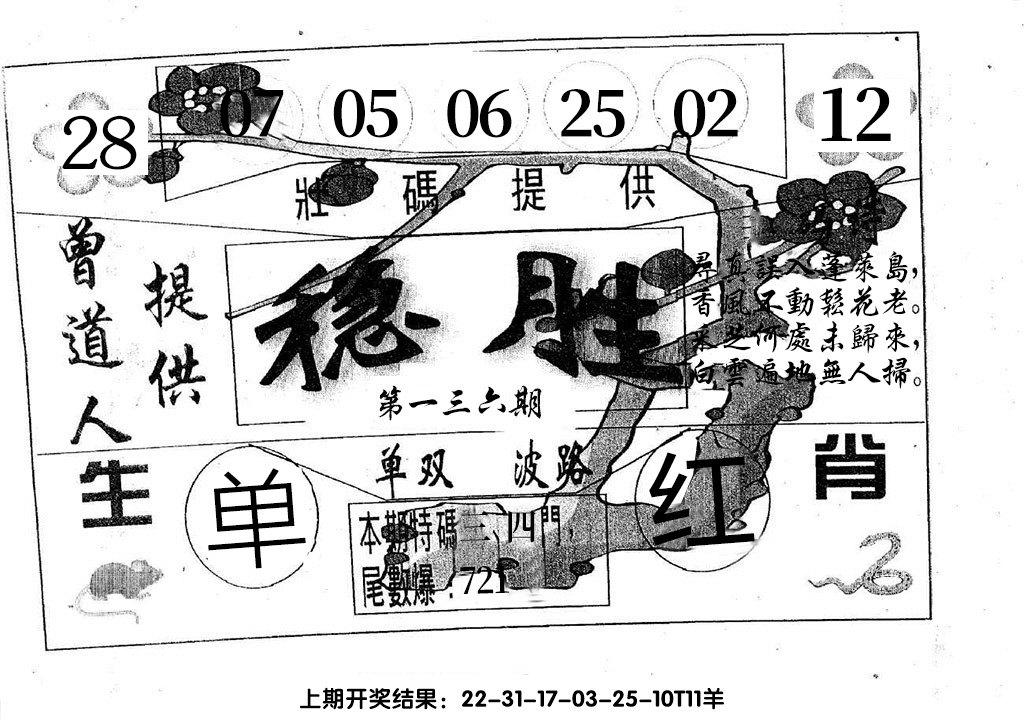 28 07 05 06 25 02 12
壯碼提供
特
曾道人
提供
稳胜
第一三六期
尋真誤入蓬萊島，
香風不動鬆花老。
采芝何處未歸來，
白雲遍地無人掃。
单双 波路
生肖
单
红
本期特碼三、四門，
尾數爆：721
上期开奖结果：22-31-17-03-25-10T11羊